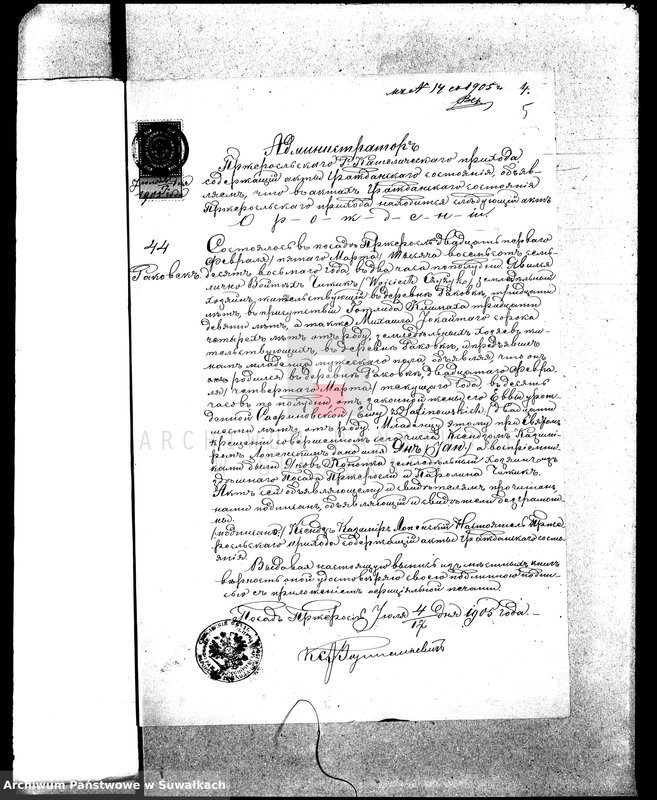 кн N 14 ск 1905 г 4.
5
Администраторъ
Пржеросльскаго Р. Католическаго прихода
содержащій акты Гражданскаго состоянія, объяв-
ляетъ, что въ актахъ Гражданскаго состоянія
Пржеросльскаго прихода находится слѣдующій актъ
О р-о-ж-д-е-н-іи.
44
Раковекъ
Состоялось въ посадѣ Пржеросль двадцать перваго
Февраля/пятаго Марта/ тысяча восемьсотъ семь-
десятъ восьмаго года, въ два часа по полудни. Явился
лично Войтѣхъ Чижикъ /Wojciech Czyżyk/ земледѣльный
хозяинъ, жительствующій въ деревнѣ Раковкѣ, тридцати
лѣтъ, въ присутствіи Готлиба Климаха тридцати
девяти лѣтъ, а также Михаила Іокайтаго сорока
четырехъ лѣтъ отъ роду, земледѣльныхъ хозяевъ жи-
тельствующихъ, въ деревнѣ Раковкѣ, и предъявилъ
намъ младенца мужескаго пола, объявляя что онъ
родился въ деревнѣ Раковкѣ, двадцатаго Февра-
ля/четвертаго Марта/ текущаго года, въ десять
часовъ по полудни, отъ законной жены его Еввы урож-
денной Рафиновской /Ewy z Rafinowskich/ двадцати
шести лѣтъ, отъ роду. Младенцу этому при Святомъ
крещеніи совершенномъ сего числа Ксендзомъ Казими-
ромъ Лопенскимъ дано имя Янъ /Jan/ а воспріемни-
ками были Яковъ земледѣльный хозяинъ изъ
здѣшняго Посада Пржеросли и Каролина Чижикъ.
Актъ сей объявляющему и свидѣтелямъ прочитанъ,
нами подписанъ, объявляющій и свидѣтели безграмот-
ны.
/подписано/ Ксендзъ Казимиръ Лопенскій Настоятель Прже-
росльскаго прихода содержащій акты Гражданскаго состо-
янія.
Выдавая настоящую выпись изъ мѣстныхъ книгъ
вѣрность оной удостовѣряю своею подлинною подпи-
сью съ приложеніемъ оффиціальной печати.
Посадъ Пржеросль, Іюля 4/17 дня 1905 года.
Archiwum Państwowe w Suwałkach